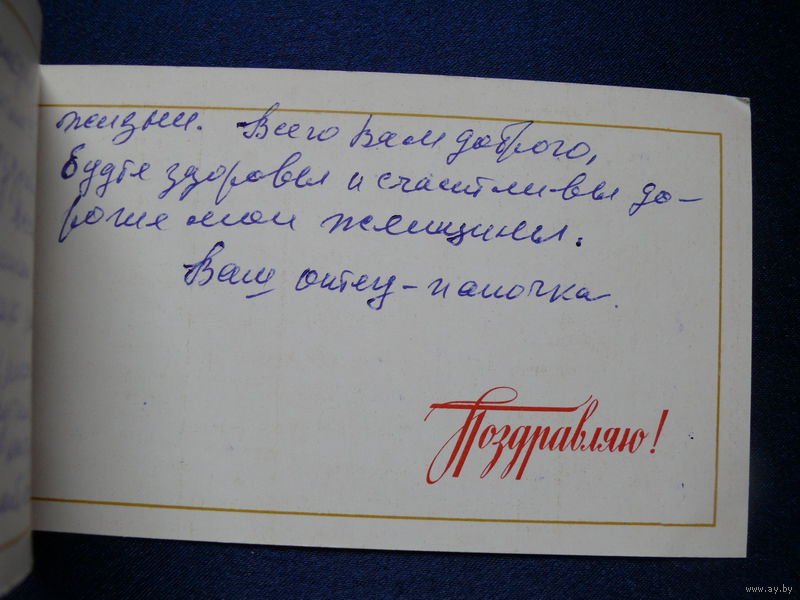 жизни. Всего вам доброго,
будте здоровы и счастливы до-
рогие мои женщины.
Ваш отец-папочка.
Поздравляю!
www.ay.by